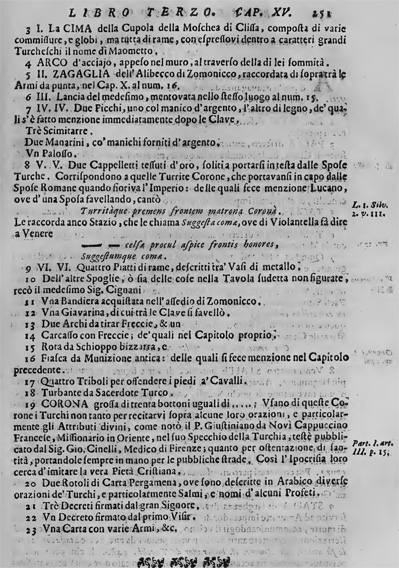 LIBRO TERZO. CAP. XV. 251
3 I. La CIMA della Cupola della Moschea di Clissa, composta di varie
commissure, e globi, ma tutta di rame, con espressovi dentro a caratteri grandi
Turcheschi il nome di Maometto.
4 ARCO d'acciajo, appeso nel muro, al traverso della di lei sommità.
5 II. ZAGAGLIA dell'Alibecco di Zomonicco, raccordata di sopra trà le
Armi da punta, nel Cap. X. al num. 16.
6 III. Lancia del medesimo, mentovata nello stesso luogo al num. 15.
7 IV. IV. Due Picchi, uno col manico d'argento, l'altro di legno, de' qua-
li s'è fatto menzione immediatamente dopo le Clave.
Trè Scimitarre.
Due Manarini, co' manichi forniti d'argento.
Vn Palosso.
8 V. V. Due Cappelletti tessuti d'oro, soliti a portarsi in testa dalle Spose
Turche. Corrispondono a quelle Turrite Corone, che portavansi in capo dalle
Spose Romane quando fioriva l'Imperio: delle quali fece menzione Lucano,
ove d'una Sposa favellando, cantò
Turritaque premens frontem matrona Corona.
Le raccorda anco Stazio, che le chiama Suggesta coma, ove di Violantella fà dire
a Venere
L. 1. Silv.
2. v. 111.
—— —— celsæ procul aspice frontis honores,
Suggestumque coma.
9 VI. VI. Quattro Piatti di rame, descritti tra' Vasi di metallo.
10 Dell'altre Spoglie, ò sia delle cose nella Tavola sudetta non figurate,
recò il medesimo Sig. Cignani
11 Vna Bandiera acquistata nell'assedio di Zomonicco.
12 Vna Giavarina, di cui trà le Clave si favellò.
13 Due Archi da tirar Freccie, & un
14 Carcasso con Freccie; de' quali nel Capitolo proprio.
15 Rota da Schioppo bizzarra, e
16 Fiasca da Munizione antica: delle quali si fece menzione nel Capitolo
precedente.
17 Quattro Triboli per offendere i piedi a' Cavalli.
18 Turbante da Sacerdote Turco.
19 CORONA grossa di trenta bottoni uguali di.....; Vsano di queste Co-
rone i Turchi non tanto per recitarvi sopra alcune loro orazioni, e particolar-
mente gli Attributi divini, come notò il P. Giustiniano da Novi Cappuccino
Francese, Missionario in Oriente, nel suo Specchio della Turchia, testè pubbli-
cato dal Sig. Gio. Cinelli, Medico di Firenze; quanto per ostentazione di san-
tità, portandole sempre in mano per le pubbliche strade. Così l'Ipocrisia loro
cerca d'imitare la vera Pietà Cristiana.
Part. 1. art.
III. p. 15.
20 Due Rotoli di Carta Pergamena, ove sono descritte in Arabico diverse
orazioni de' Turchi, e particolarmente Salmi, e nomi d'alcuni Profeti.
21 Trè Decreti firmati dal gran Signore.
22 Vn Decreto firmato dal primo Visir.
23 Vna Carta con varie Armi, &c.